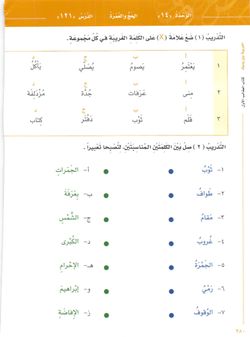 الوَحْدَة «١٤» الحَجُّ والعُمْرَة الدَّرْس «١٢١»
التدريب (١) ضَعْ علامة (X) على الكلمة الغريبة في كل مجموعة.
١ يَعْتَمِرُ يَصُومُ يُصَلِّي يَأْكُلُ
٢ مِنى عَرَفات جُدَّة مُزْدَلِفَة
٣ قَلَم ثَوْب دَفْتَر كِتاب
التدريب (٢) صِلْ بَيْنَ الكلمتين المناسبتين، لتُصبحا تعبيراً.
١- ثَوْبُ أ- الجَمَراتِ
٢- طَوافُ ب- بِعَرَفَةَ
٣- مَقامُ ج- الشَّمْسِ
٤- غُروبُ د- الكُبْرى
٥- الجَمْرَةُ هـ- الإحْرامِ
٦- رَمْيُ و- إبْراهيمَ
٧- الوُقوفُ ز- الإفاضَةِ